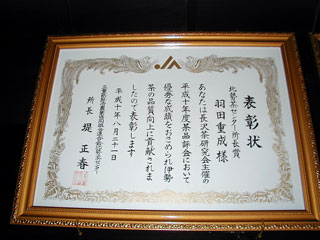 表彰状
北勢茶センター所長賞
羽田重成様
あなたは長沢茶研究会主催の
平成十年度茶品評会において
優秀な成績をおさめられ伊勢
茶の品質向上に貢献されま
したので表彰します
平成十年八月二十一日
所長 堤 正春